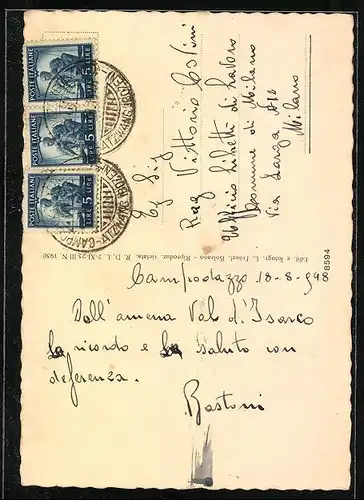 POSTE ITALIANE
LIRE 5 LIRE
POSTE ITALIANE
LIRE 5 LIRE
POSTE ITALIANE
LIRE 5 LIRE
Eg. Sig
Rag Vittorio
Ufficio Libretti di Lavoro
Comune di Milano
Via Larga N 12
Milano
Ediz. e fotogr. L. Fränzl, Bolzano - Riproduz. vietata. R. D. L. 7-XI-25 III N. 1950
8594
Campodazzo 18-8-948
Dall'amena Val d'Isarco
la ricordo e la saluto con
deferenza.
Bastoni